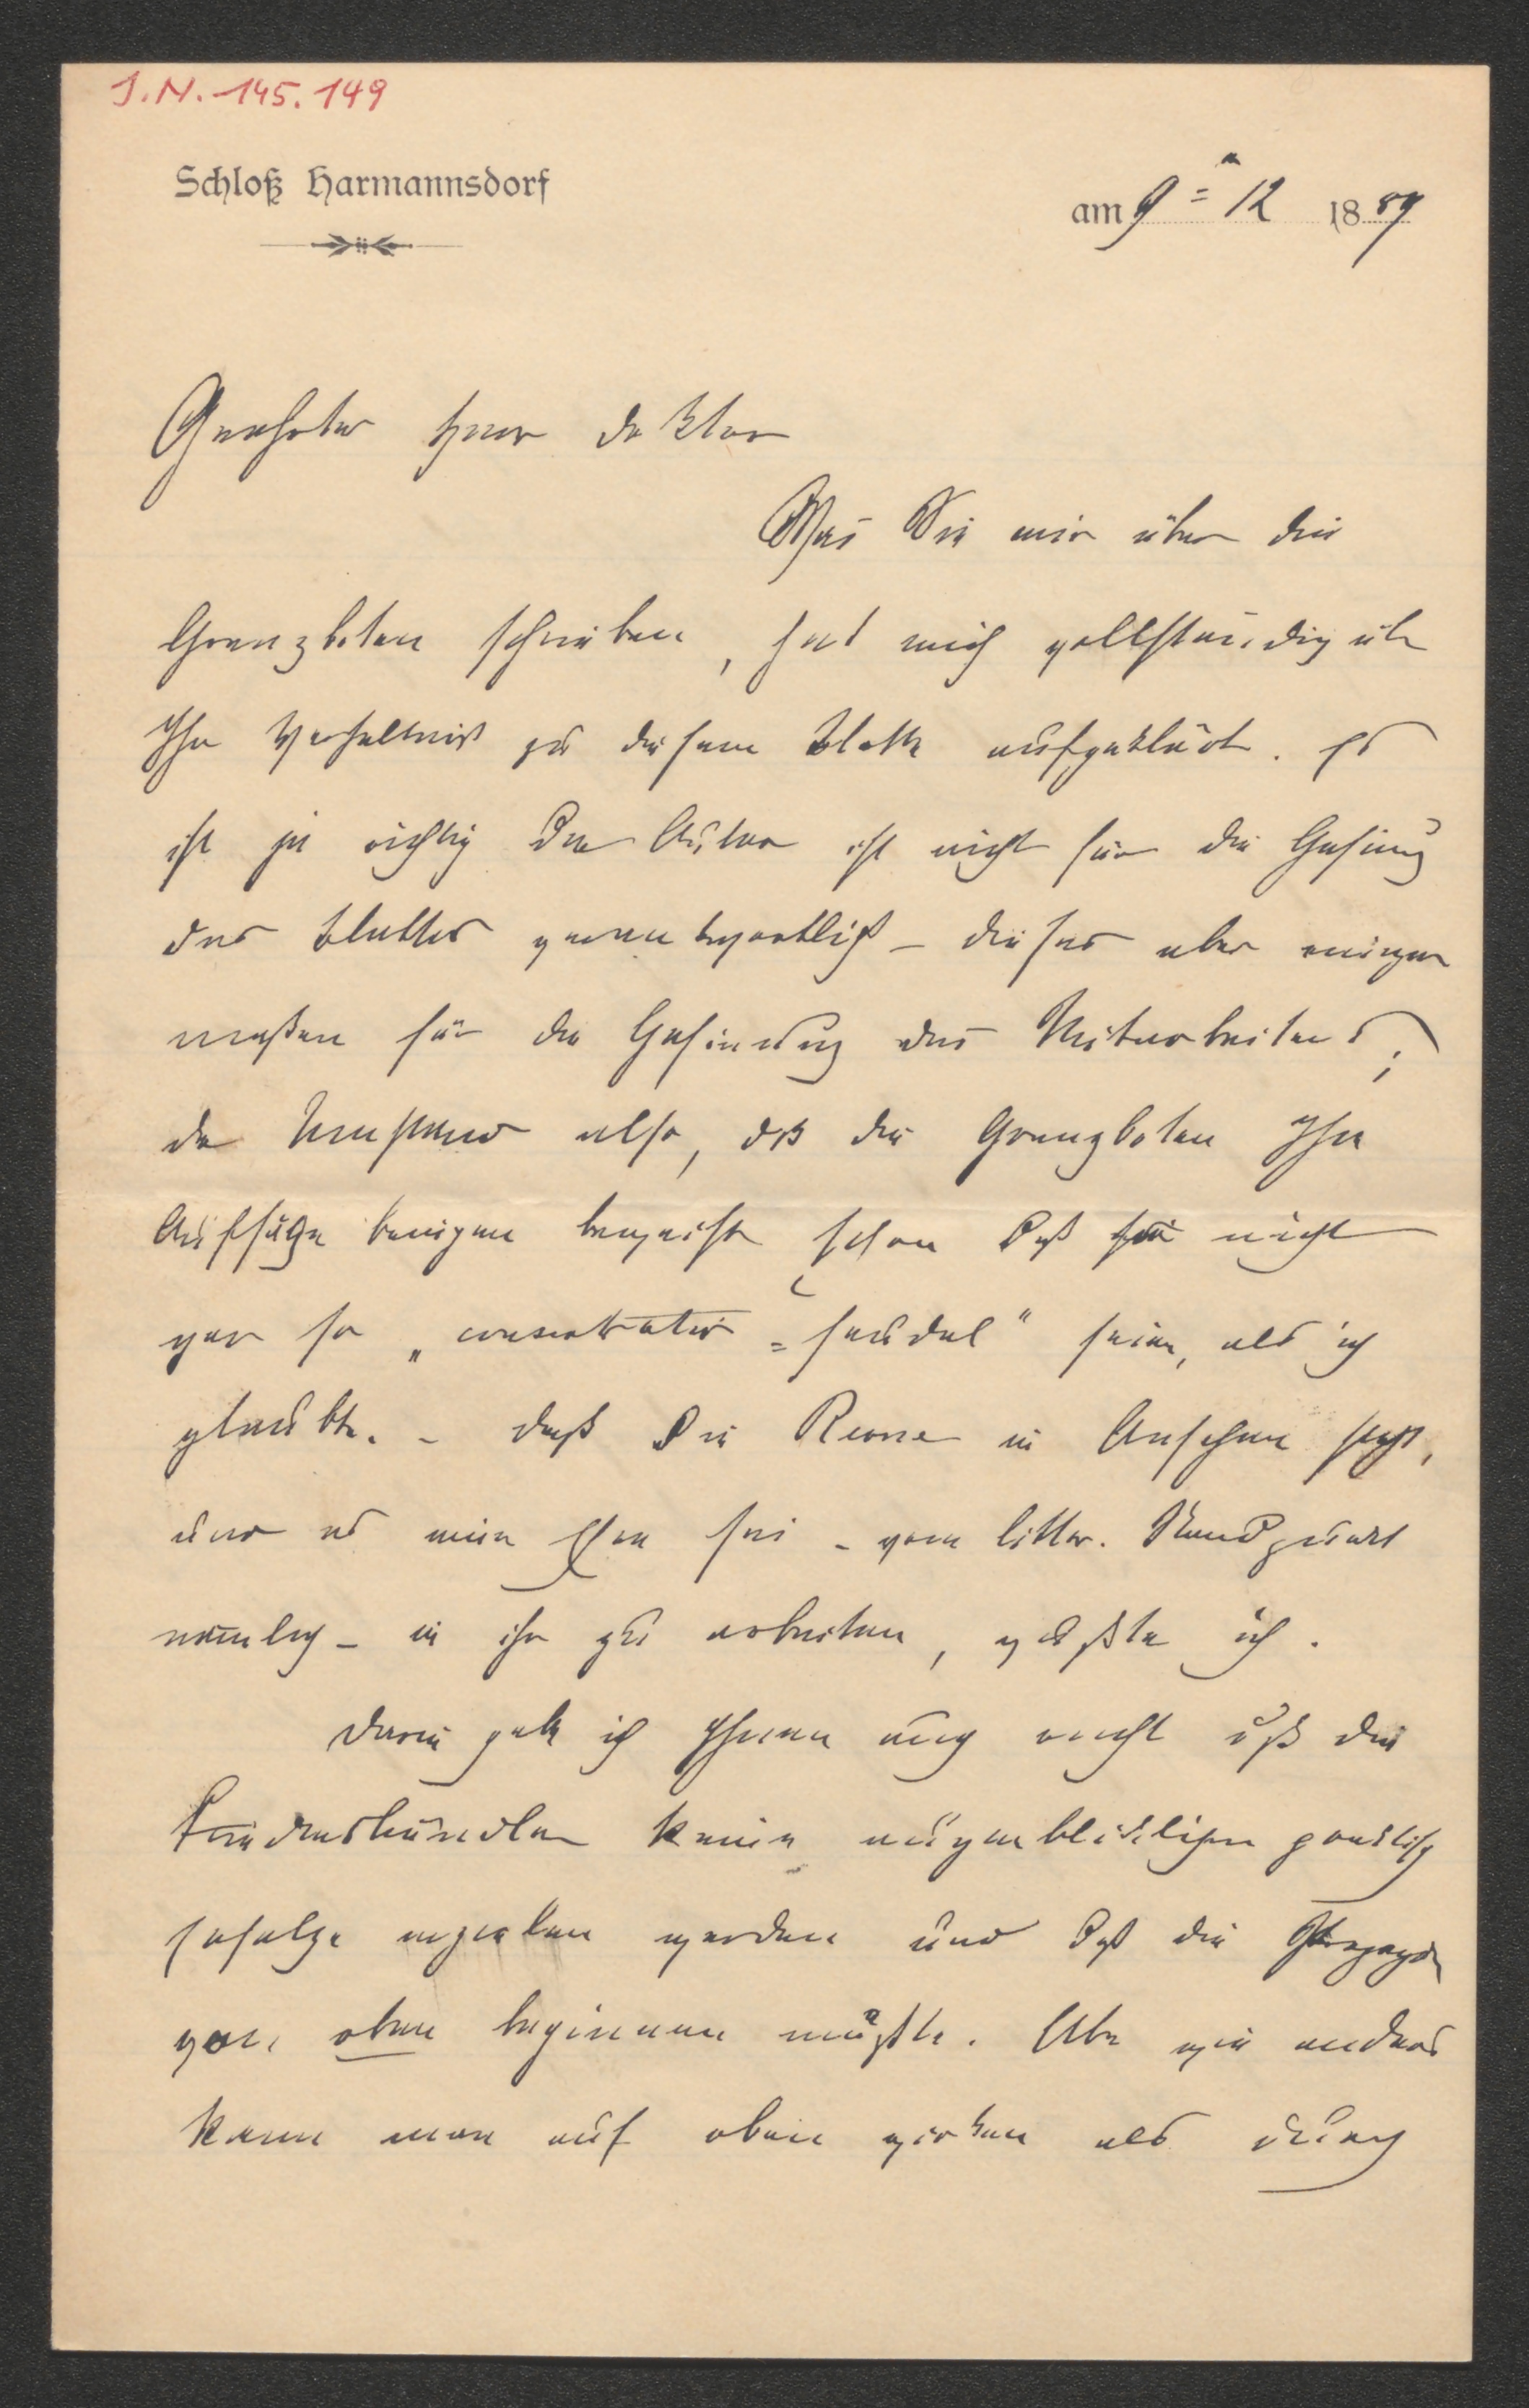 J.N. 145.149
Schloß Harmannsdorf
am 9 = 12 1889
Geehrter Herr Doktor
Was Sie mir über die
Grenzboten schrieben, hat mich vollständig über
Ihr Verhältniß zu diesem Blatte aufgeklärt. Es
ist ja richtig der Autor ist nicht für die Gesinng
des Blattes verantwortlich – dieses aber einiger
maßen für die Gesinnung des Mitarbeiters;
der Umstand also, daß die Grenzboten Ihre
Aufsätze bringen beweist schon daß sie nicht
gar so „conservativ = feudal" seien, als ich
glaubte. – Daß die Revue in Ansehen steht,
und es eine Ehre sei – vom litter. Standpunkt
nämlich – in ihr zu arbeiten, wußte ich.
Darin gebe ich Ihnen auch recht daß die
Friedensbündler keine augenblicklichen praktisch
Erfolge erzielen werden und daß die Propaganda
von oben beginnen müßte. Aber wie anders
kann man auf oben wirken als durch